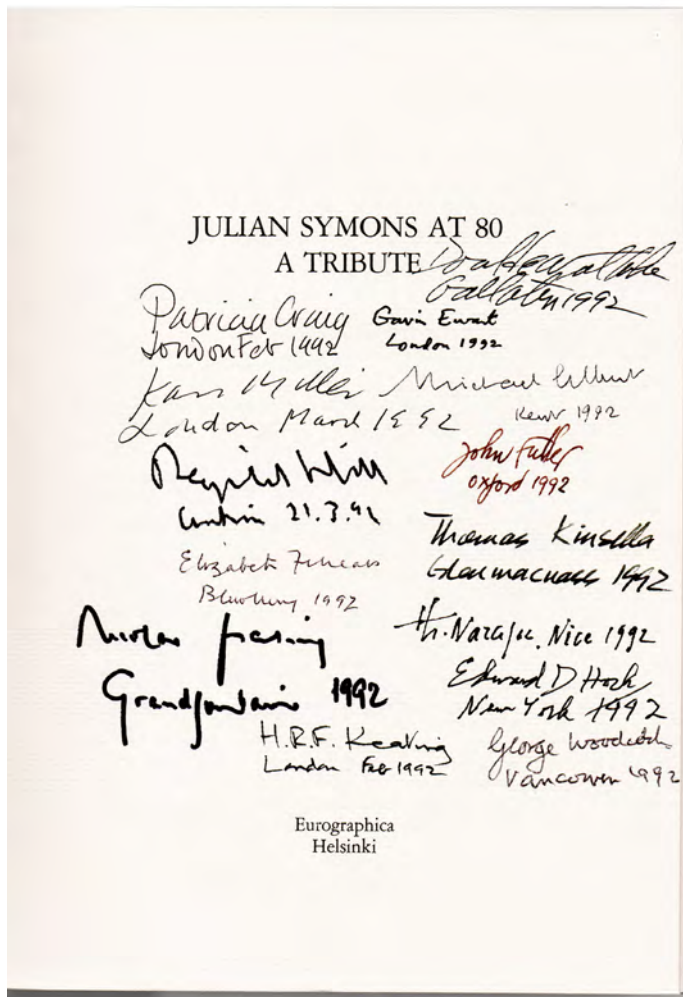 JULIAN SYMONS AT 80
A TRIBUTE
1992
Patricia Craig
London Feb 1992
Gavin Ewart
London 1992
Karl Miller
London March 1992
Michael Gilbert
Kent 1992
Reginald Hill
21.3.92
John Fuller
Oxford 1992
Elizabeth Ferrars
1992
Thomas Kinsella
Glenmacnass 1992
Nicolas Freeling
Grandfontaine 1992
Th. Narcejac, Nice 1992
Edward D Hoch
New York 1992
H.R.F. Keating
London Feb 1992
George Woodcock
Vancouver 1992
Eurographica
Helsinki